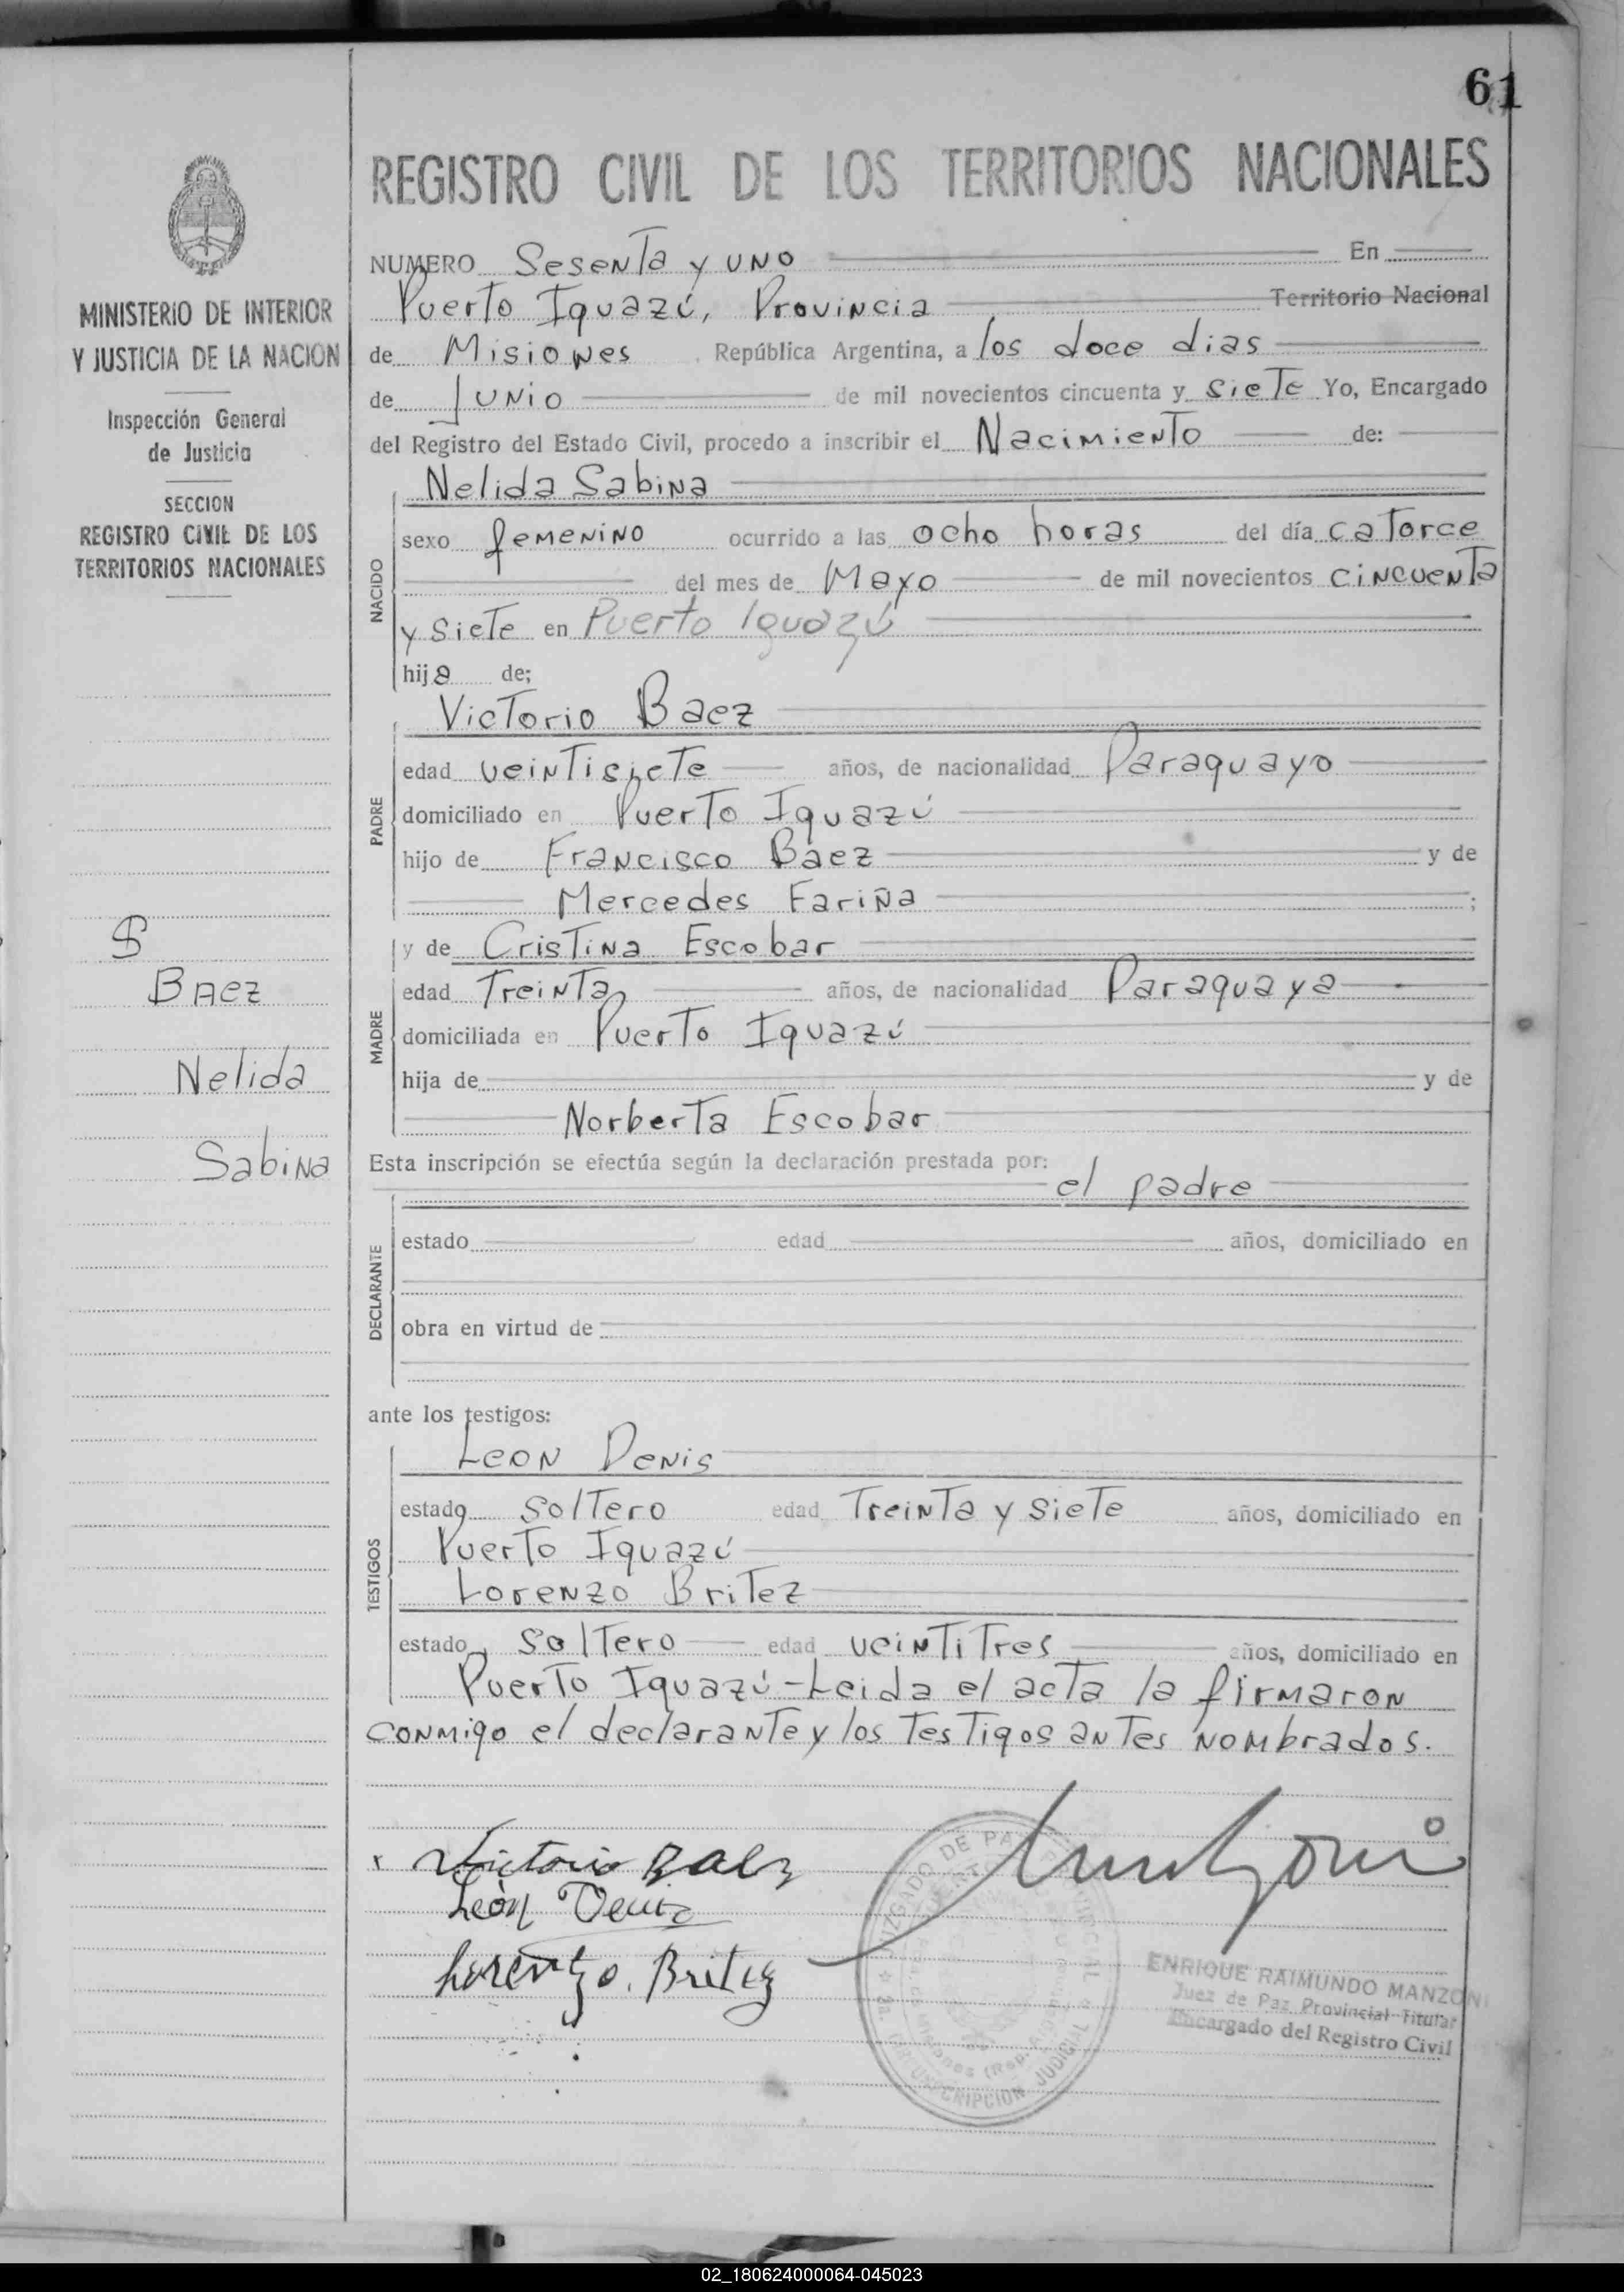 61
REGISTRO CIVIL DE LOS TERRITORIOS NACIONALES
MINISTERIO DE INTERIOR
Y JUSTICIA DE LA NACION
Inspección General
de Justicia
SECCION
REGISTRO CIVIL DE LOS
TERRITORIOS NACIONALES
$
Baez
Nelida
Sabina
NUMERO Sesenta y uno En
Puerto Iguazú, Provincia Territorio Nacional
de Misiones República Argentina, a los doce dias
de Junio de mil novecientos cincuenta y siete Yo, Encargado
del Registro del Estado Civil, procedo a inscribir el Nacimiento de:
NACIDO
Nelida Sabina
sexo femenino ocurrido a las ocho horas del día catorce
del mes de Mayo de mil novecientos cincuenta
y siete en Puerto Iguazú
hija de;
PADRE
Victorio Baez
edad veintisiete años, de nacionalidad Paraguayo
domiciliado en Puerto Iguazú
hijo de Francisco Baez y de
Mercedes Fariña ;
MADRE
y de Cristina Escobar
edad Treinta años, de nacionalidad Paraguaya
domiciliada en Puerto Iguazú
hija de y de
Norberta Escobar
Esta inscripción se efectúa según la declaración prestada por:
el padre
DECLARANTE
estado edad años, domiciliado en
obra en virtud de
ante los testigos:
TESTIGOS
Leon Denis
estado soltero edad Treinta y siete años, domiciliado en
Puerto Iguazú
Lorenzo Britez
estado soltero edad veintitres años, domiciliado en
Puerto Iguazú - Leida el acta la firmaron
conmigo el declarante y los testigos antes nombrados.
Victorio Baez
León Denis
Lorentzo. Britez
JUZGADO DE PAZ PROVINCIAL
CIRCUNSCRIPCION JUDICIAL
ENRIQUE RAIMUNDO MANZONI
Juez de Paz Provincial Titular
Encargado del Registro Civil
02_180624000064-045023